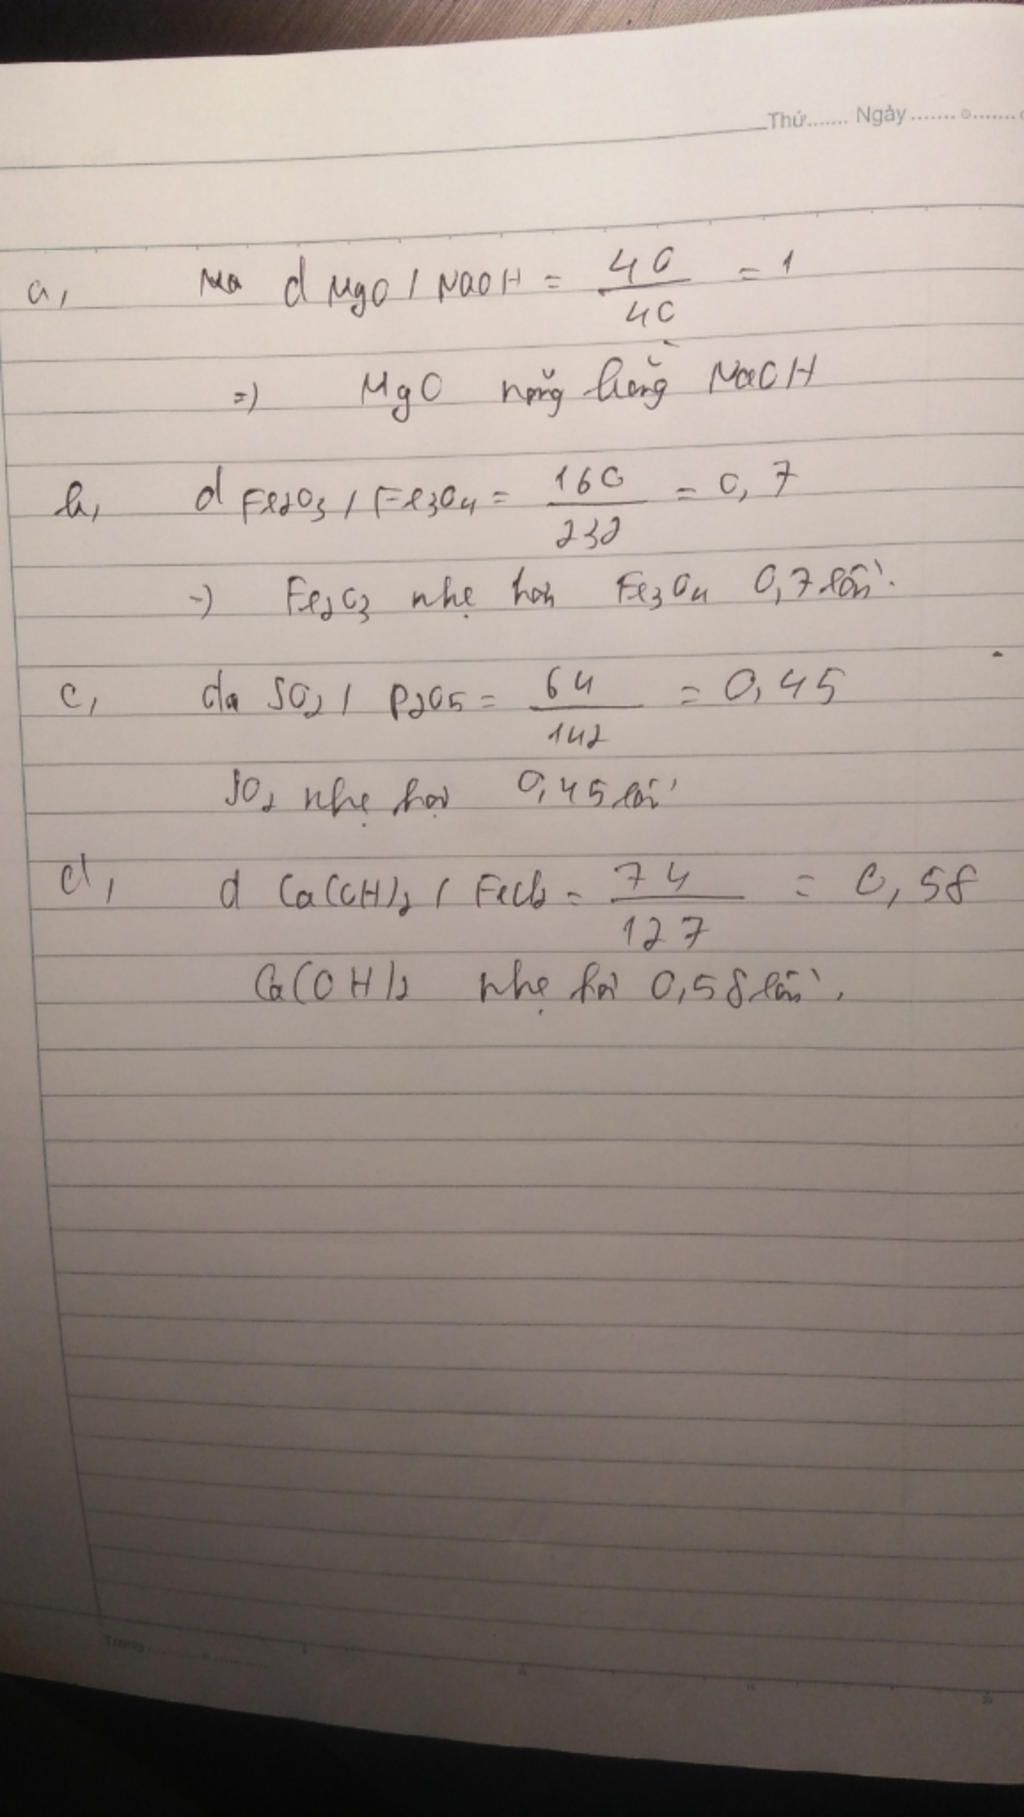 Thứ....... Ngày ....... o .......
a, d MgO / NaOH = 40/40 = 1
=) MgO nặng bằng NaOH
b, d Fe2O3 / Fe3O4 = 160/232 = 0,7
=) Fe2O3 nhẹ hơn Fe3O4 0,7 lần.
c, d SO2 / P2O5 = 64/142 = 0,45
SO2 nhẹ hơn 0,45 lần
d, d Ca(OH)2 / FeCl2 = 74/127 = 0,58
Ca(OH)2 nhẹ hơn 0,58 lần.
Trang